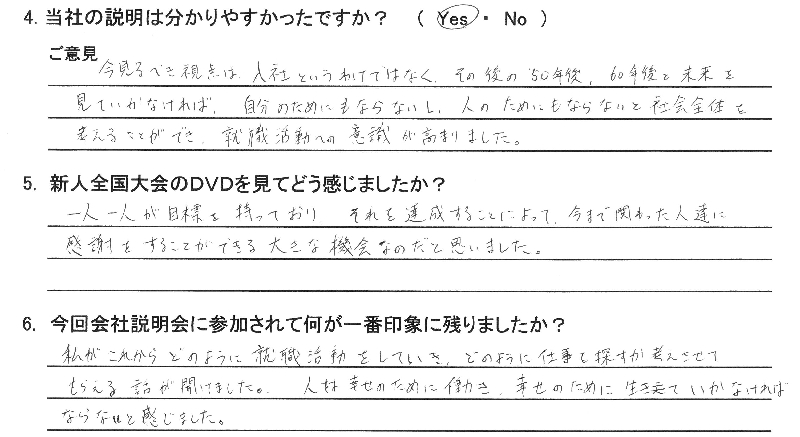 4. 当社の説明は分かりやすかったですか？ （ Yes ・ No ）
ご意見
今見るべき視点は、入社というわけではなく、その後の50年後、60年後と未来を
見ていかなければ、自分のためにもならないし、人のためにもならないと社会全体を
考えることができ、就職活動への意識が高まりました。
5. 新人全国大会のDVDを見てどう感じましたか？
一人一人が目標を持っており それを達成することによって、今まで関わった人達に
感謝をすることができる大きな機会なのだと思いました。
6. 今回会社説明会に参加されて何が一番印象に残りましたか？
私がこれからどのように就職活動をしていき、どのように仕事を探すか考えさせて
もらえる話が聞けました。 人は幸せのために働き、幸せのために生きていかなければ
ならないと感じました。